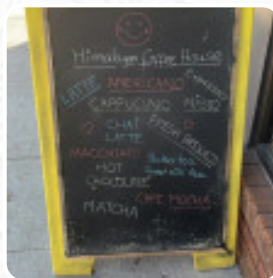 Himalayan Coffee House
LATTE AMERICANO ESPRESSO
CAPPUCINO
CHAI
LATTE
FRESH BREWED
MACCHIATO
HOT
CHOCOLATE
CAFE MOCHA
MATCHA